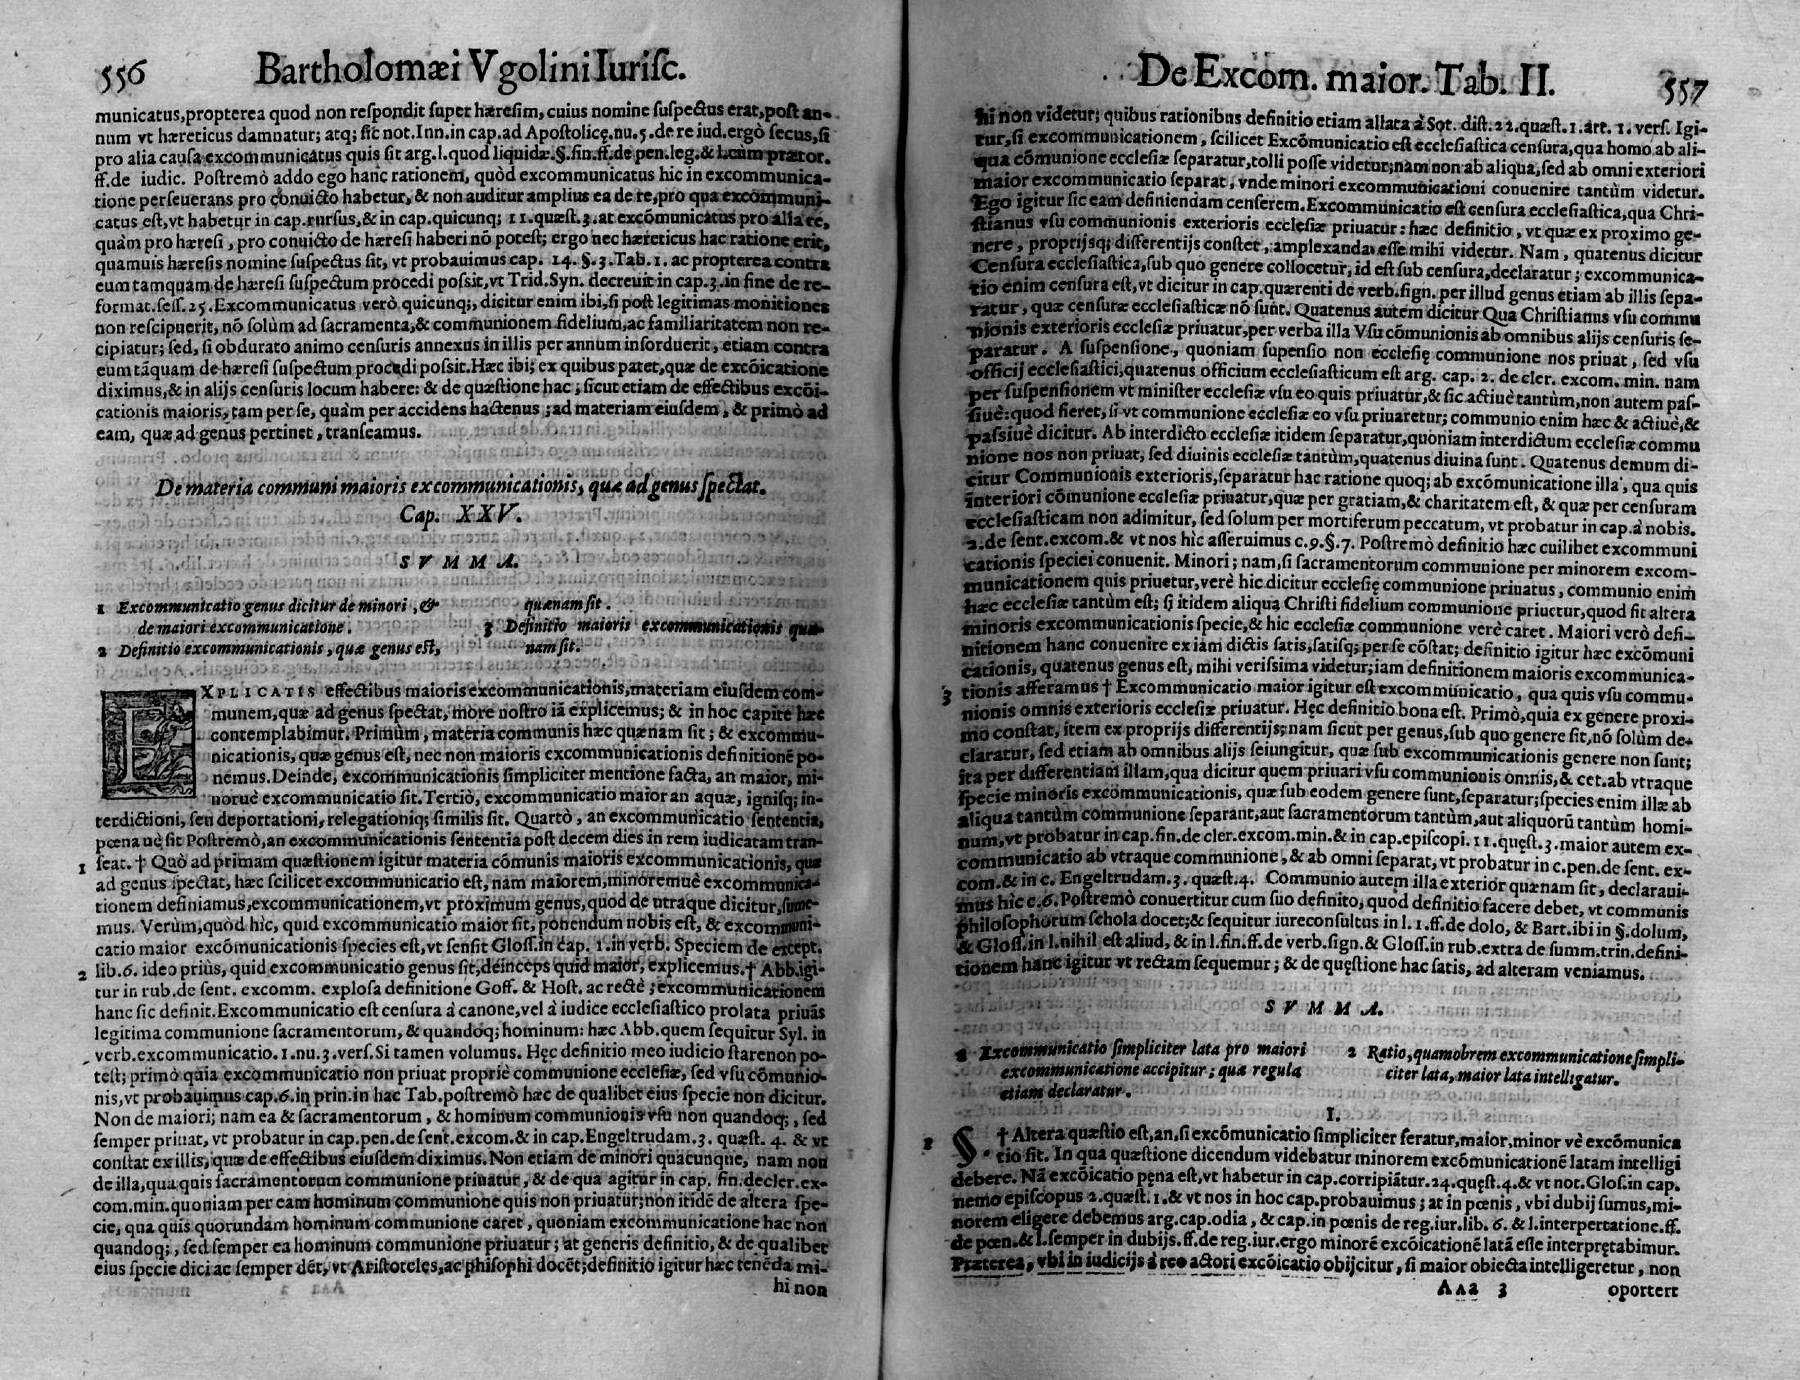 556 Bartholomæi Vgolini Iurisc.
municatus, propterea quod non respondit super hæresim, cuius nomine suspectus erat, post an-
num vt hæreticus damnatur; atq; sic not. Inn. in cap. ad Apostolicę. nu. 5. de re iud. ergò secus, si
pro alia causa excommunicatus quis sit arg. l. quod liquidæ. §. fin. ff. de pen. leg. & l. cùm prætor.
ff. de iudic. Postremò addo ego hanc rationem, quòd excommunicatus hic in excommunica-
tione perseuerans pro conuicto habetur, & non auditur amplius ea de re, pro qua excommuni-
catus est, vt habetur in cap. rursus, & in cap. quicunq; 11. quæst. 3. at excõmunicatus pro alia re,
quàm pro hæresi, pro conuicto de hæresi haberi nõ potest; ergo nec hæreticus hac ratione erit,
quamuis hæresis nomine suspectus sit, vt probauimus cap. 14. §. 3. Tab. 1. ac propterea contra
eum tamquam de hæresi suspectum procedi possit, vt Trid. Syn. decreuit in cap. 3. in fine de re-
format. sess. 25. Excommunicatus verò quicunq;, dicitur enim ibi, si post legitimas monitiones
non rescipuerit, nõ solùm ad sacramenta, & communionem fidelium, ac familiaritatem non re-
cipiatur; sed, si obdurato animo censuris annexus in illis per annum insorduerit, etiam contra
eum tãquam de hæresi suspectum procedi possit. Hæc ibi; ex quibus patet, quæ de excõicatione
diximus, & in alijs censuris locum habere: & de quæstione hac, sicut etiam de effectibus excõi-
cationis maioris, tam per se, quàm per accidens hactenus; ad materiam eiusdem, & primò ad
eam, quæ ad genus pertinet, transeamus.
De materia communi maioris excommunicationis, quæ ad genus spectat.
Cap. XXV.
SVMMA.
1 Excommunicatio genus dicitur de minori, &
de maiori excommunicatione.
2 Definitio excommunicationis, quæ genus est,
quænam sit.
3 Definitio maioris excommunicationis quæ-
nam sit.
EXPLICATIS effectibus maioris excommunicationis, materiam eiusdem com-
munem, quæ ad genus spectat, more nostro iã explicemus; & in hoc capite hæc
contemplabimur. Primùm, materia communis hæc quænam sit; & excommu-
nicationis, quæ genus est, nec non maioris excommunicationis definitionẽ po-
nemus. Deinde, excommunicationis simpliciter mentione facta, an maior, mi-
norue excommunicatio sit. Tertiò, excommunicatio maior an aquæ, ignisq; in-
terdictioni, seu deportationi, relegationiq; similis sit. Quartò, an excommunicatio sententia,
pœna uè sit Postremò, an excommunicationis sententia post decem dies in rem iudicatam tran-
1 seat. † Quò ad primam quæstionem igitur materia cõmunis maioris excommunicationis, quæ
ad genus spectat, hæc scilicet excommunicatio est, nam maiorem, minoremuè excommunica-
tionem definiamus, excommunicationem, vt proximum genus, quod de utraque dicitur, sume-
mus. Verùm, quòd hìc, quid excommunicatio maior sit, ponendum nobis est, & excommuni-
catio maior excõmunicationis species est, vt sensit Gloss. in cap. 1. in verb. Speciem de except.
2 lib. 6. ideo priùs, quid excommunicatio genus sit, deinceps quid maior, explicemus. † Abb. igi-
tur in rub. de sent. excomm. explosa definitione Goff. & Host. ac rectè; excommunicationem
hanc sic definit. Excommunicatio est censura à canone, vel à iudice ecclesiastico prolata priuãs
legitima communione sacramentorum, & quandoq; hominum: hæc Abb. quem sequitur Syl. in
verb. excommunicatio. 1. nu. 3. vers. Si tamen volumus. Hęc definitio meo iudicio stare non po-
test; primò quia excommunicatio non priuat propriè communione ecclesiæ, sed vsu cõmunio-
nis, vt probauimus cap. 6. in prin. in hac Tab. postremò hæc de qualibet eius specie non dicitur.
Non de maiori; nam ea & sacramentorum, & hominum communionis vsu non quandoq;, sed
semper priuat, vt probatur in cap. pen. de sent. excom. & in cap. Engeltrudam. 3. quæst. 4. & vt
constat ex illis, quæ de effectibus eiusdem diximus. Non etiam de minori quacunque, nam non
de illa, qua quis sacramentorum communione priuatur, & de qua agitur in cap. fin. de cler. ex-
com. min. quoniam per eam hominum communione quis non priuatur; non itidẽ de altera spe-
cie, qua quis quorundam hominum communione caret, quoniam excommunicatione hac non
quandoq;, sed semper ea hominum communione priuatur; at generis definitio, & de qualibet
eius specie dici ac semper dẽt, vt Aristoteles, ac philosophi docẽt; definitio igitur hæc tenẽda mi-
hi non
De Excom. maior. Tab. II. 557
hi non videtur; quibus rationibus definitio etiam allata à Sot. dist. 22. quæst. 1. art. 1. vers. Igi-
tur, si excommunicationem, scilicet Excõmunicatio est ecclesiastica censura, qua homo ab ali-
qua cõmunione ecclesiæ separatur, tolli posse videtur; nam non ab aliqua, sed ab omni exteriori
maior excommunicatio separat, vnde minori excommunicationi conuenire tantùm videtur.
Ego igitur sic eam definiendam censerem. Excommunicatio est censura ecclesiastica, qua Chri-
stianus vsu communionis exterioris ecclesiæ priuatur: hæc definitio, vt quæ ex proximo ge-
nere, proprijsq; differentijs constet, amplexanda esse mihi videtur. Nam, quatenus dicitur
Censura ecclesiastica, sub quo genere collocetur, id est sub censura, declaratur; excommunica-
tio enim censura est, vt dicitur in cap. quærenti de verb. sign. per illud genus etiam ab illis sepa-
ratur, quæ censuræ ecclesiasticæ nõ sunt. Quatenus autem dicitur Qua Christianus vsu commu
nionis exterioris ecclesiæ priuatur, per verba illa Vsu cõmunionis ab omnibus alijs censuris se-
paratur. A suspensione, quoniam supensio non ecclesię communione nos priuat, sed vsu
officij ecclesiastici, quatenus officium ecclesiasticum est arg. cap. 2. de cler. excom. min. nam
per suspensionem vt minister ecclesiæ vsu eo quis priuatur, & sic actiuè tantùm, non autem pas-
siuè: quod fieret, si vt communione ecclesiæ eo vsu priuaretur; communio enim hæc & actiuè, &
passiuè dicitur. Ab interdicto ecclesiæ itidem separatur, quoniam interdictum ecclesiæ commu
nione nos non priuat, sed diuinis ecclesiæ tantùm, quatenus diuina sunt. Quatenus demum di-
citur Communionis exterioris, separatur hac ratione quoq; ab excõmunicatione illa, qua quis
interiori cõmunione ecclesiæ priuatur, quæ per gratiam, & charitatem est, & quæ per censuram
ecclesiasticam non adimitur, sed solum per mortiferum peccatum, vt probatur in cap. à nobis.
2. de sent. excom. & vt nos hic asseruimus c. 9. §. 7. Postremò definitio hæc cuilibet excommuni
cationis speciei conuenit. Minori; nam, si sacramentorum communione per minorem excom-
municationem quis priuetur, verè hic dicitur ecclesię communione priuatus, communio enim
hæc ecclesiæ tantùm est; si itidem aliqua Christi fidelium communione priuetur, quod fit altera
minoris excommunicationis specie, & hic ecclesiæ communione verè caret. Maiori verò defi-
nitionem hanc conuenire ex iam dictis satis, satisq; per se cõstat; definitio igitur hæc excõmuni
cationis, quatenus genus est, mihi verissima videtur; iam definitionem maioris excommunica-
3 tionis afferamus † Excommunicatio maior igitur est excommunicatio, qua quis vsu commu-
nionis omnis exterioris ecclesiæ priuatur. Hęc definitio bona est. Primò, quia ex genere proxi-
mo constat, item ex proprijs differentijs; nam sicut per genus, sub quo genere sit, nõ solùm de-
claratur, sed etiam ab omnibus alijs seiungitur, quæ sub excommunicationis genere non sunt;
ita per differentiam illam, qua dicitur quem priuari vsu communionis omnis, & cet. ab vtraque
specie minoris excommunicationis, quæ sub eodem genere sunt, separatur; species enim illæ ab
aliqua tantùm communione separant, aut sacramentorum tantùm, aut aliquorũ tantùm homi-
num, vt probatur in cap. fin. de cler. excom. min. & in cap. episcopi. 11. quęst. 3. maior autem ex-
communicatio ab vtraque communione, & ab omni separat, vt probatur in c. pen. de sent. ex-
com. & in c. Engeltrudam. 3. quæst. 4. Communio autem illa exterior quænam sit, declaraui-
mus hìc c. 6. Postremò conuertitur cum suo definito, quod definitio facere debet, vt communis
philosophorum schola docet; & sequitur iureconsultus in l. 1. ff. de dolo, & Bart. ibi in §. dolum,
& Gloss. in l. nihil est aliud, & in l. fin. ff. de verb. sign. & Gloss. in rub. extra de summ. trin. defini-
tionem hanc igitur vt rectam sequemur; & de quęstione hac satis, ad alteram veniamus.
SVMMA.
1 Excommunicatio simpliciter lata pro maiori
excommunicatione accipitur; quæ regula
etiam declaratur.
2 Ratio, quamobrem excommunicatione simpli-
citer lata, maior lata intelligatur.
I.
1 §. † Altera quæstio est, an, si excõmunicatio simpliciter feratur, maior, minor vè excõmunica
tio sit. In qua quæstione dicendum videbatur minorem excõmunicationẽ latam intelligi
debere. Nã excõicatio pęna est, vt habetur in cap. corripiãtur. 24. quęst. 4. & vt not. Glos. in cap.
nemo episcopus 2. quæst. 1. & vt nos in hoc cap. probauimus; at in pœnis, vbi dubij sumus, mi-
norem eligere debemus arg. cap. odia, & cap. in pœnis de reg. iur. lib. 6. & l. interpertatione. ff.
de pœn. & l. semper in dubijs. ff. de reg. iur. ergo minorẽ excõicationẽ latã esse interprętabimur.
Præterea, vbi in iudicijs à reo actori excõicatio obijcitur, si maior obiecta intelligeretur, non
Aaa 3 oportert